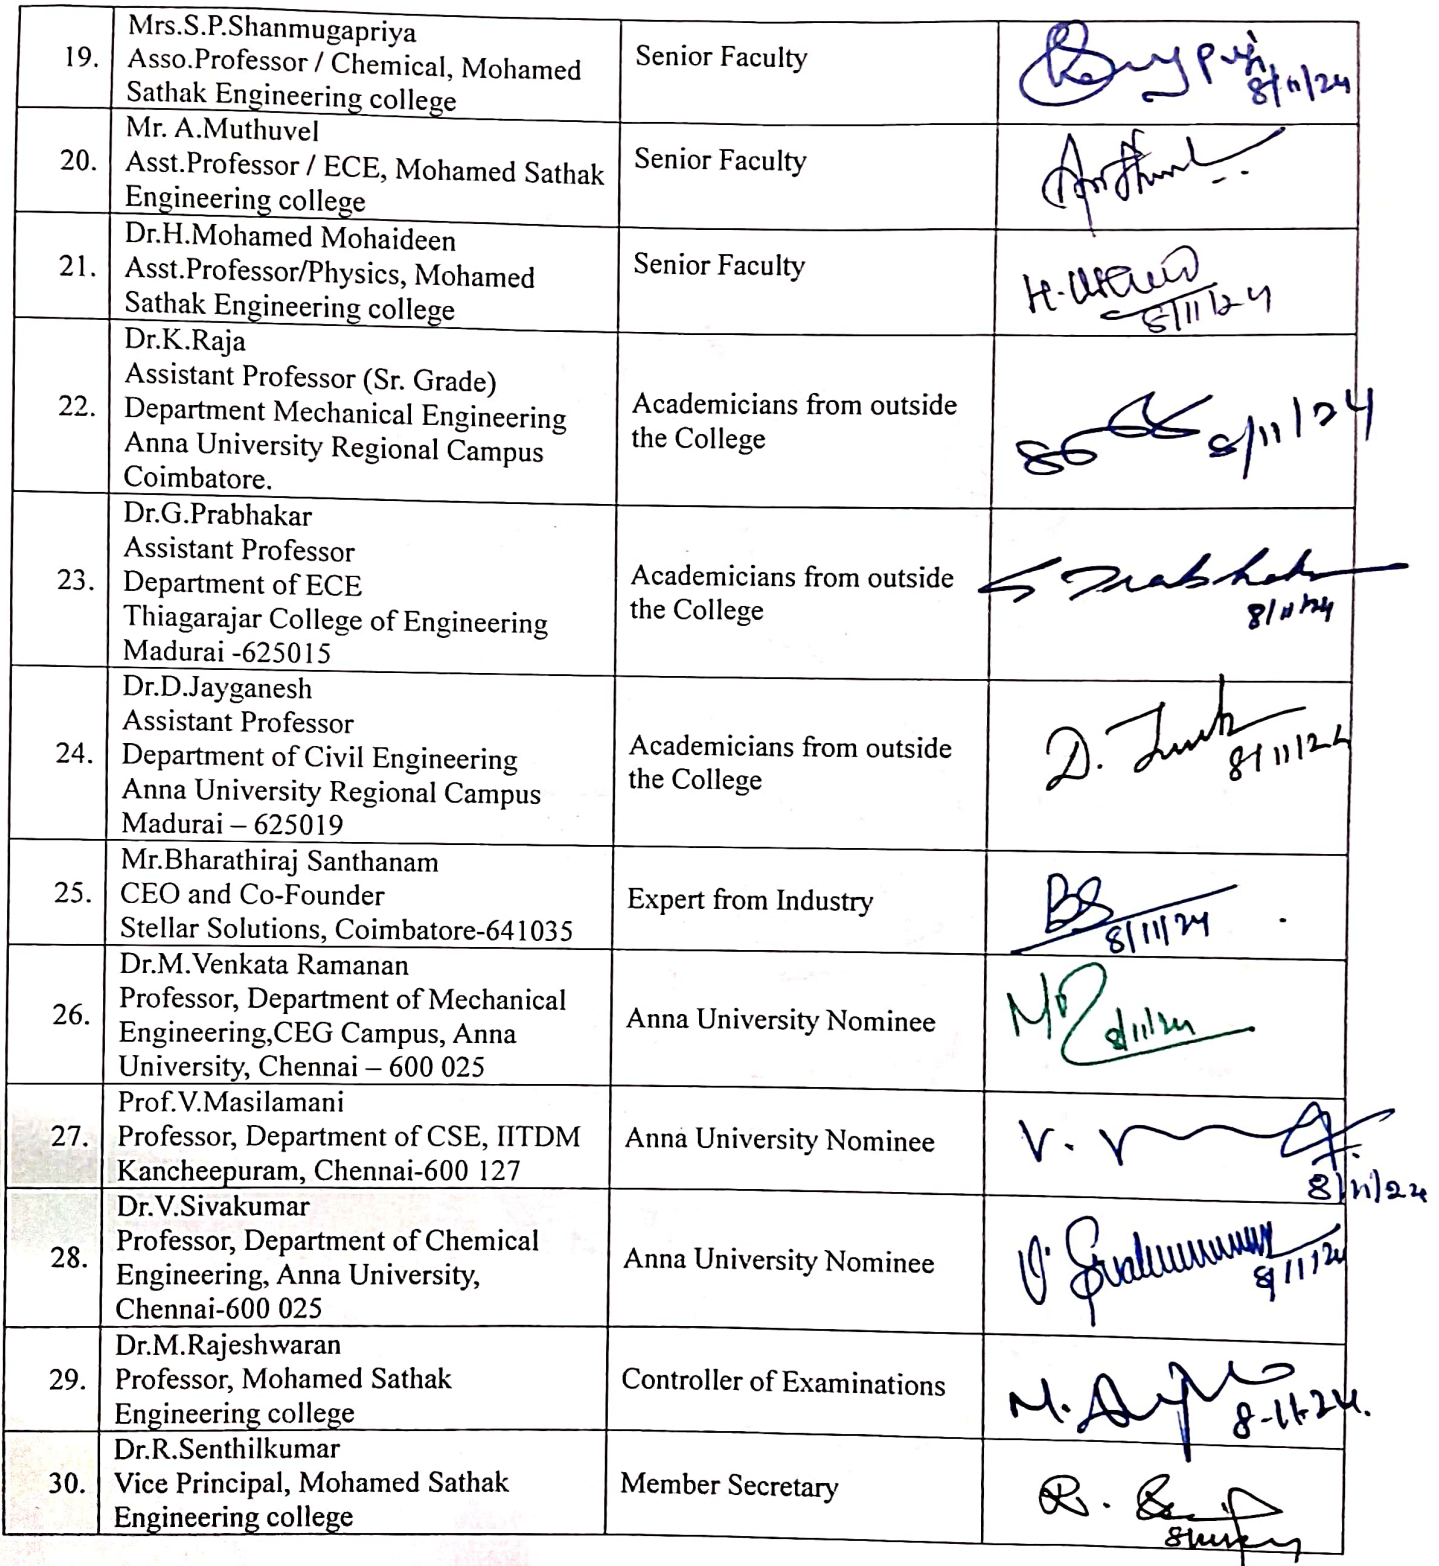 19.
Mrs.S.P.Shanmugapriya
Asso.Professor / Chemical, Mohamed
Sathak Engineering college
Senior Faculty
8/11/24
20.
Mr. A.Muthuvel
Asst.Professor / ECE, Mohamed Sathak
Engineering college
Senior Faculty
21.
Dr.H.Mohamed Mohaideen
Asst.Professor/Physics, Mohamed
Sathak Engineering college
Senior Faculty
8/11/24
22.
Dr.K.Raja
Assistant Professor (Sr. Grade)
Department Mechanical Engineering
Anna University Regional Campus
Coimbatore.
Academicians from outside
the College
8/11/24
23.
Dr.G.Prabhakar
Assistant Professor
Department of ECE
Thiagarajar College of Engineering
Madurai -625015
Academicians from outside
the College
8/11/24
24.
Dr.D.Jayganesh
Assistant Professor
Department of Civil Engineering
Anna University Regional Campus
Madurai – 625019
Academicians from outside
the College
D.
8/11/24
25.
Mr.Bharathiraj Santhanam
CEO and Co-Founder
Stellar Solutions, Coimbatore-641035
Expert from Industry
BS
8/11/24
26.
Dr.M.Venkata Ramanan
Professor, Department of Mechanical
Engineering,CEG Campus, Anna
University, Chennai – 600 025
Anna University Nominee
8/11/24
27.
Prof.V.Masilamani
Professor, Department of CSE, IITDM
Kancheepuram, Chennai-600 127
Anna University Nominee
V.
8/11/24
28.
Dr.V.Sivakumar
Professor, Department of Chemical
Engineering, Anna University,
Chennai-600 025
Anna University Nominee
8/11/24
29.
Dr.M.Rajeshwaran
Professor, Mohamed Sathak
Engineering college
Controller of Examinations
M.
8-11-24.
30.
Dr.R.Senthilkumar
Vice Principal, Mohamed Sathak
Engineering college
Member Secretary
R.